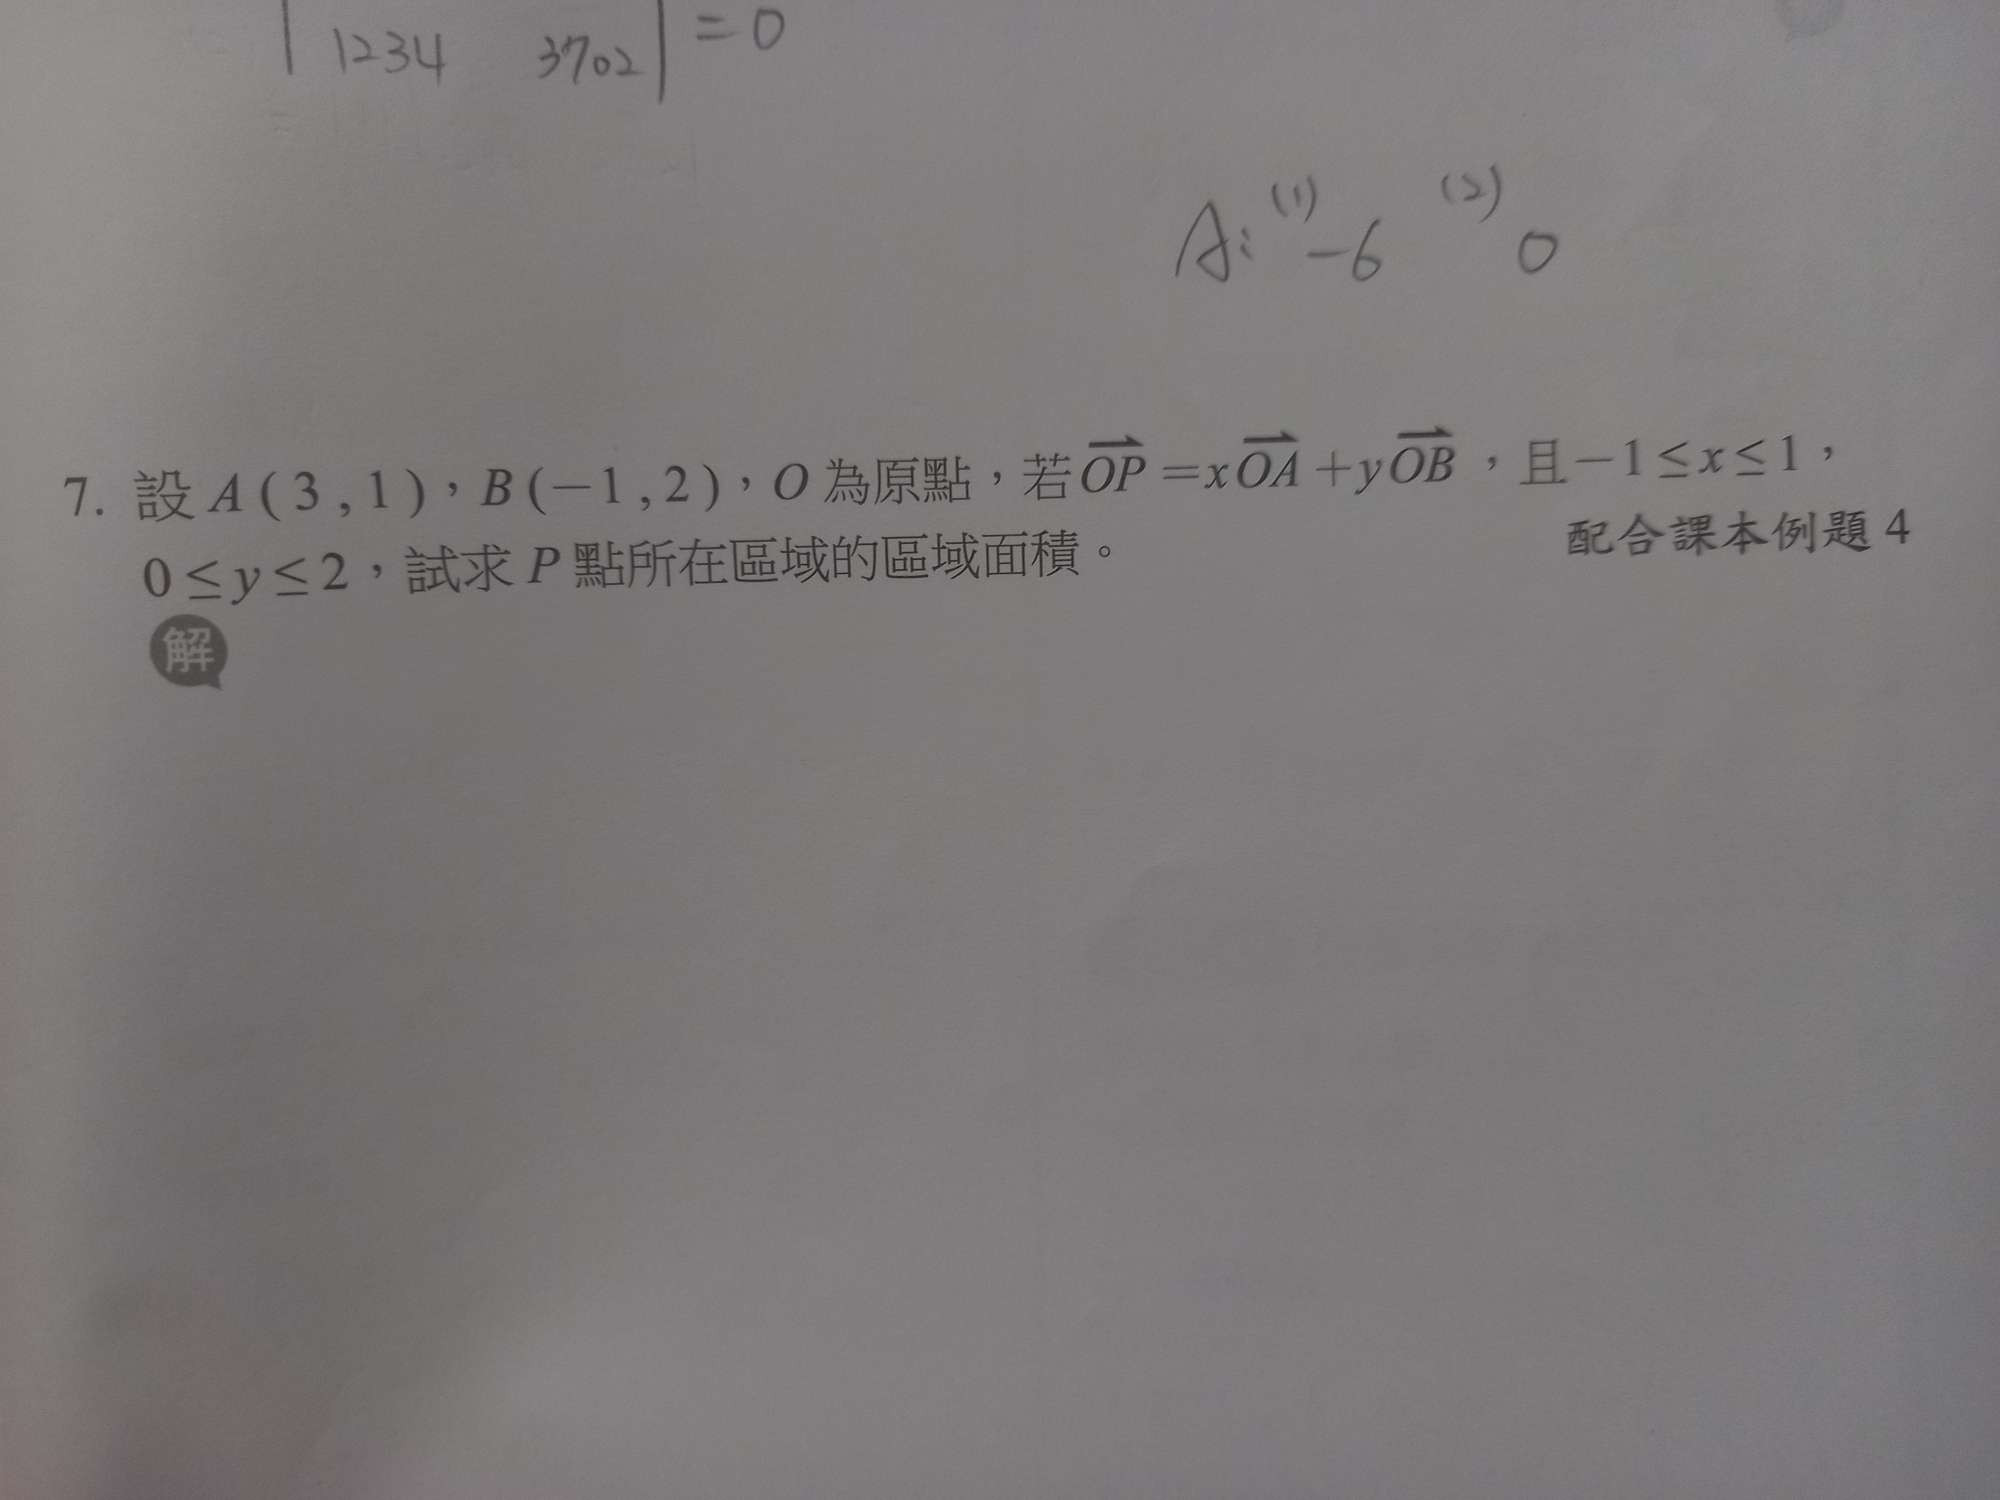 | 1234 3702 | = 0
A: (1) -6 (2) 0
7. 設 A ( 3 , 1 )，B (−1 , 2 )，O 為原點，若 \overrightarrow{OP} = x\overrightarrow{OA} + y\overrightarrow{OB}，且 −1 ≤ x ≤ 1，
0 ≤ y ≤ 2，試求 P 點所在區域的區域面積。 配合課本例題 4
解